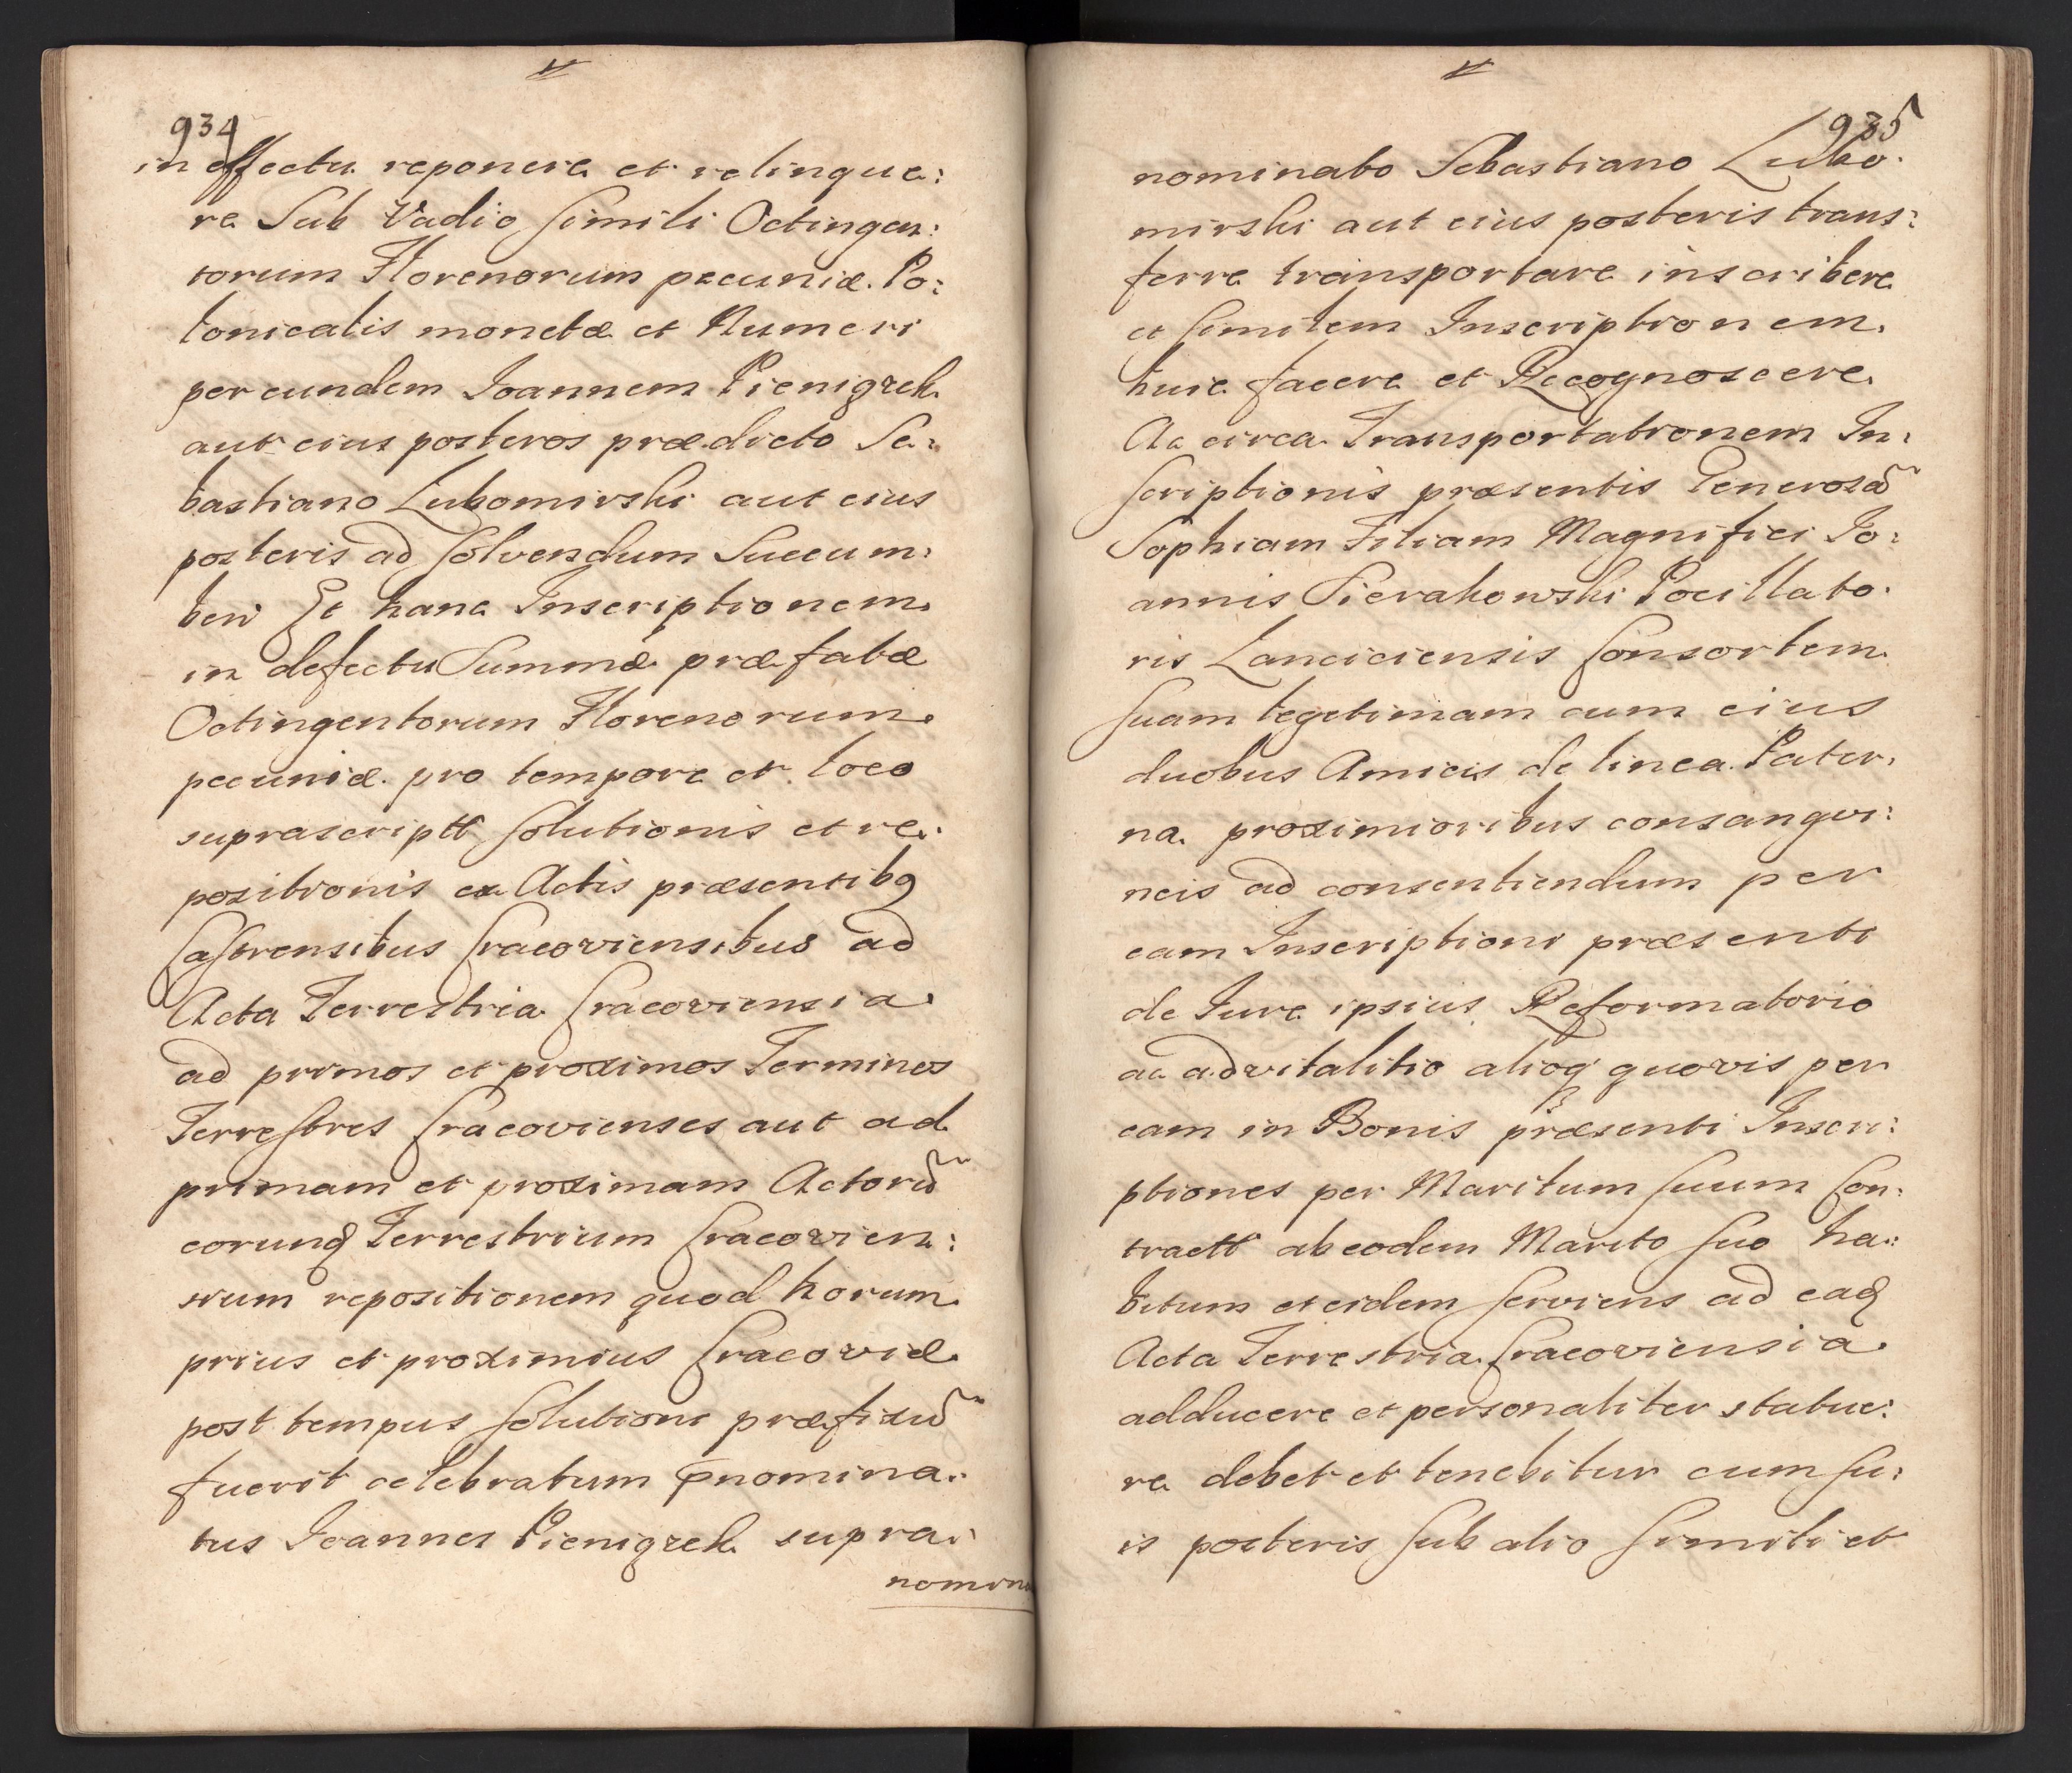 934
in effectu reponere et relinque:
re Sub Vadio simili Octingen:
torum Florenorum pecuniæ Po:
lonicalis monetæ et Numeri
per eundem Joannem Pieniązek
aut eius posteros prædicto Se:
bastiano Lubomirski aut eius
posteris ad solvendum Succum:
ben Et hanc Inscriptionem
in defectu Summæ præfatæ
Octingentorum Florenorum
pecuniæ pro tempore et loco
suprascriptt solutionis et re:
positionis ex Actis præsentibq
Castrensibus Cracoviensibus ad
Acta Terrestria Cracoviensia
ad primos et proximos Terminos
Terrestres Cracovienses aut ad
primam et proximam Actorũ
eorunq Terrestrium Cracovien:
sium repositionem quod horum
prius et proximius Cracoviæ
post tempus solutioni præfixũ
fuerit celebratum pnomina:
tus Joannes Pieniązek supra:
nomina
935
nominato Sebastiano Lubo:
mirski aut eius posteris trans:
ferre transportare inscribere
et similem Inscriptionem
huic facere et Recognoscere
Ac circa Transportationem In:
scriptionis præsentis Generosã
Sophiam Filiam Magnifici Jo:
annis Sierakowski Pocillato:
ris Lanciciensis Consortem
suam legetimam cum eius
duobus Amicis de linea Pater:
na proximioribus consangvi:
neis ad consentiendum per
eam Inscriptioni præsenti
de Jure ipsius Reformatorio
ac advitalitio alioq quovis per
eam in Bonis præsenti Inscri:
ptiones per Maritum suum Con:
tractt ab eodem Marito suo ha:
bitum et eidem serviens ad eaq
Acta Terrestria Cracoviensia
adducere et personaliter statue:
re debet et tenebitur cum su:
is posteris sub alio simili et